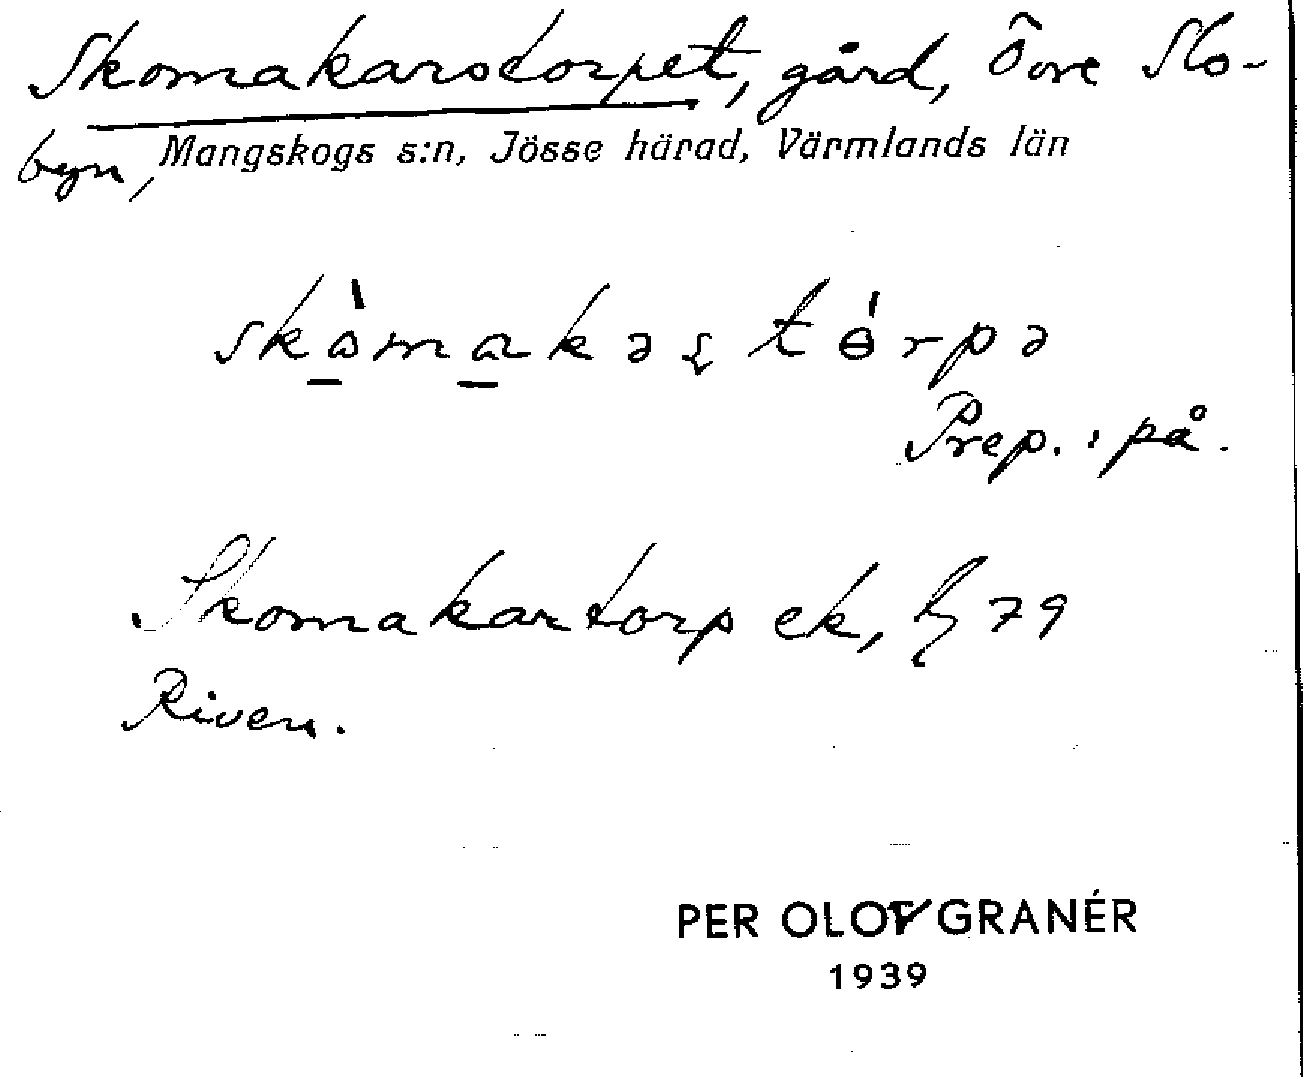 Skomakarstorpet, gård, Övre Slo-
byn, Mangskogs s:n, Jösse härad, Värmlands län
Prep.: på.
Skomakartorp ek, 79
Riven.
PER OLOF GRANÉR
1939